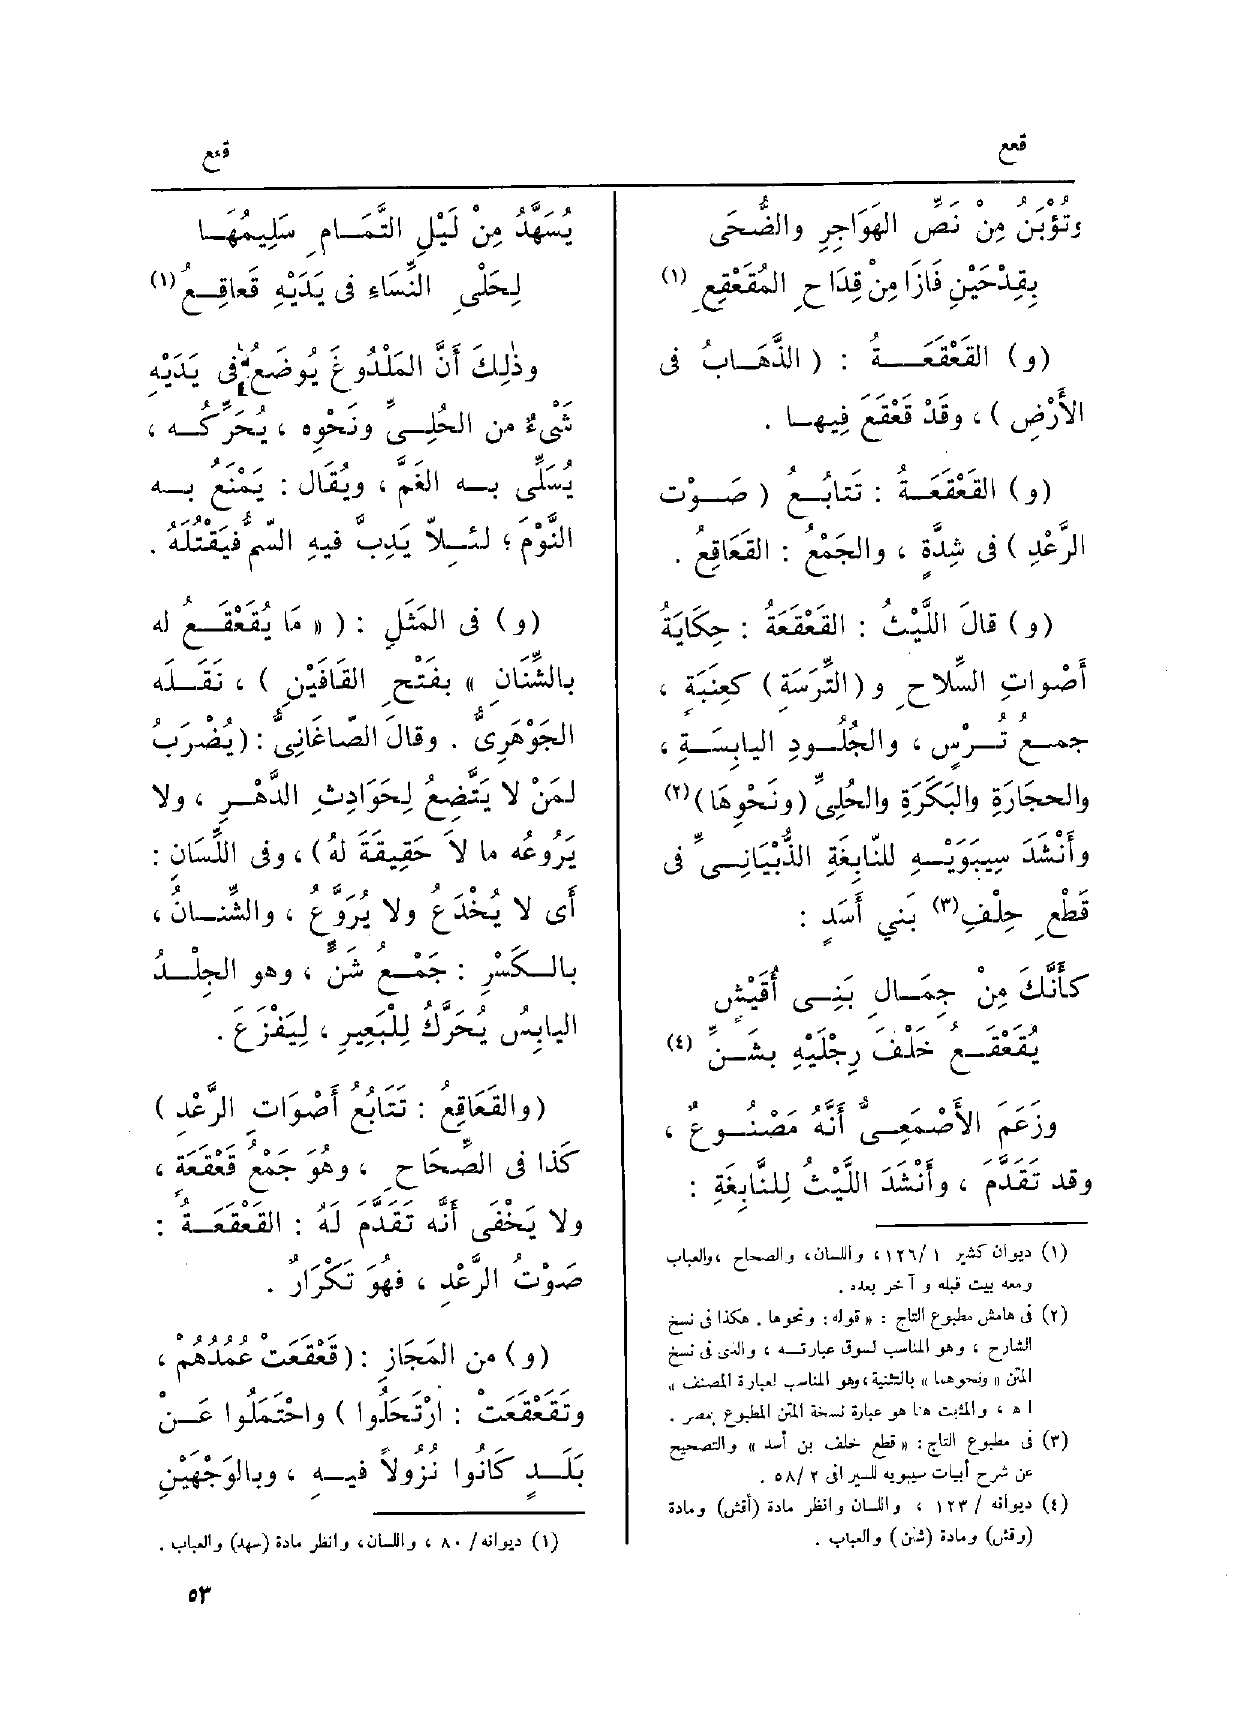 قعع
قعع
وَتُؤْبَنُ مِن نَصِّ الهَوَاجِرِ والضُّحَى
بِقِدْحَيْنِ فَازَا مِنْ قِدَاحِ المُقَعْقِعِ (١)
(و) القَعْقَعَـــةُ : ( الذَّهَـابُ فى
الأَرْضِ ) ، وقَدْ قَعْقَعَ فِيهـا .
(و) القَعْقَعَـةُ : تَتابُـع ( صَـوْت
الرَّعْدِ ) فى شِدَّةٍ ، والجَمْعُ : القَعَاقِعُ .
(و) قالَ اللَّيْثُ : القَعْقَعَةُ : حِكَايَةُ
أَصْواتِ السِّلاحِ و(التِّرَسَةِ) كعِنَبَةٍ ،
جمـع تُـرْسٍ ، والجُلُـودِ اليابِسَـةِ ،
والحجَارَةِ والبَكَرَةِ والحُلِىِّ (ونَحْوِهَا)(٢)
وأَنْشَدَ سِيبَوَيْـهِ للنّابِغَةِ الذُّبْيَانِـىِّ فى
قَطْعِ حِلْفِ(٣) بَنِي أَسَدٍ :
كَأَنَّكَ مِنْ جِمَـالِ بَنِـى أُقَيْشٍ
يُقَعْقَـعُ خَلْفَ رِجْلَيْهِ بشَـنِّ (٤)
وزَعَمَ الأَصْمَعِـىُّ أَنَّهُ مَصْنُـوعٌ ،
وقد تَقَدَّمَ ، وأَنْشَدَ اللَّيْثُ لِلنَّابِغَةِ :
(١) ديوان كثير ١ /١٢٦، واللسان، والصحاح ،والعباب
ومعه بيت قبله و آخر بعده .
(٢) فى هامش مطبوع التاج : « قوله : ونحوها . هكذا فى نسخ
الشارح ، وهو المناسب لسوق عبارتـه ، والذى فى نسخ
المتن « ونحوهما » بالتثنية ، وهو المناسب لعبارة المصنف »
ا ه ، والمثبت هنا هو عبارة نسخة المتن المطبوع بمصر .
(٣) فى مطبوع التاج : « قطع خلف بن أسد » والتصحيح
عن شرح أبيات سيبويه للسيرافى ٢ /٥٨ .
(٤) ديوانه / ١٢٣ ، واللسان وانظر مادة (أقش) ومادة
(وقش) ومادة (شنن) والعباب .
يُسَهَّدُ مِنْ لَيْلِ التَّمَـامِ سَلِيمُهَـا
لِحَلْىِ النِّسَاءِ فى يَدَيْهِ قَعاقِـعُ(١)
وذٰلِكَ أَنَّ المَلْدُوغَ يُوضَعُ فى يَدَيْهِ
شَىْءٌ من الحُلِـىِّ ونَحْوِه ، يُحَرِّكُـه ،
يُسَلَّى بـه الغَمّ ، ويُقَال : يَمْنَعُ بـه
النَّوْمَ ؛ لئـلاّ يَدِبَّ فيهِ السّمُّ فيَقْتُلَهُ .
(و) فى المَثَلِ : ( « مَا يُقَعْقَـعُ له
بالشِّنَانِ » بفَتْحِ القَافَيْنِ ) ، نَقَـلَه
الجَوْهَرِىُّ . وقالَ الصّاغَانِىُّ : (يُضْرَبُ
لمَنْ لا يَتَّضِعُ لِحَوَادِثِ الدَّهْـرِ ، ولا
يَرُوعُه ما لاَ حَقِيقَةَ لهُ) ، وفى اللِّسَانِ :
أَى لا يُخْدَعُ ولا يُرَوَّع ، والشِّنـانُ ،
بالـكَسْرِ : جَمْـعُ شَنٍّ ، وهو الجِلْـدُ
اليابِسُ يُحَرَّكُ لِلْبَعِيرِ ، لِيَفْزَعَ .
(والقَعَاقِعُ : تَتَابُعُ أَصْوَاتِ الرَّعْدِ )
كذا فى الصِّحَاحِ ، وهُوَ جَمْعُ قَعْقَعَةٍ ،
ولا يَخْفَى أَنَّه تَقَدَّمَ لَهُ : القَعْقَعَـةُ :
صَوْتُ الرَّعْدِ ، فهُوَ تَكْرَارٌ .
(و) من المَجَازِ : (قَعْقَعَتْ عُمُدُهُمْ ،
وتَقَعْقَعَت : ارْتَحَلُوا ) واحْتَمَلُوا عَـن
بَلَـدٍ كَانُوا نُزُولاً فيـهِ ، وبالوَجْهَيْنِ
(١) ديوانه / ٨٠ ، واللسان، وانظر مادة (سهد) والعباب .
٥٣